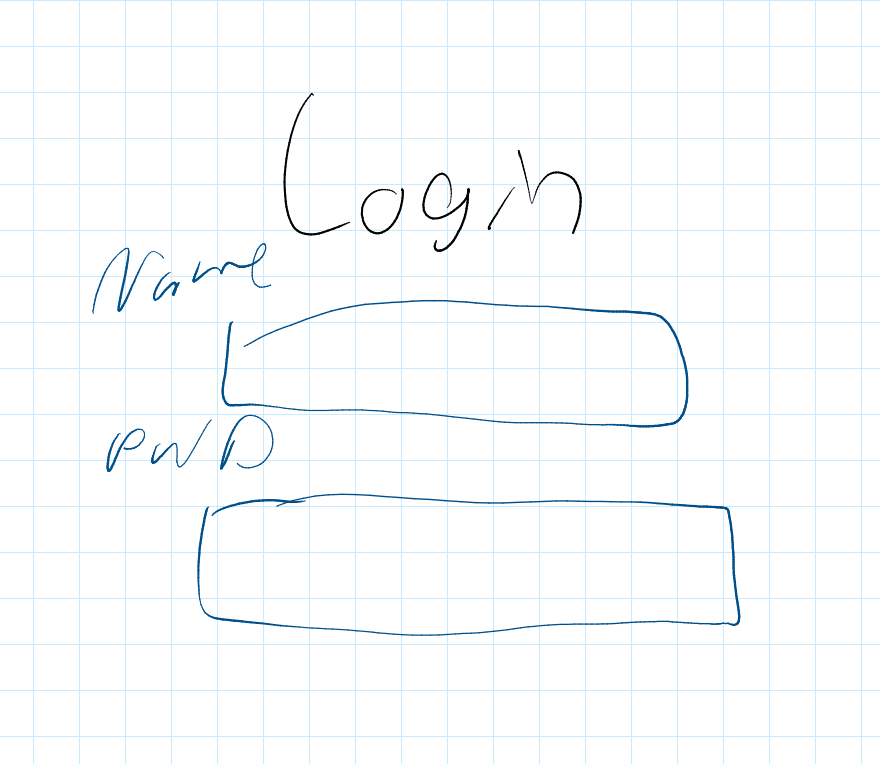 Login
Name
PWD